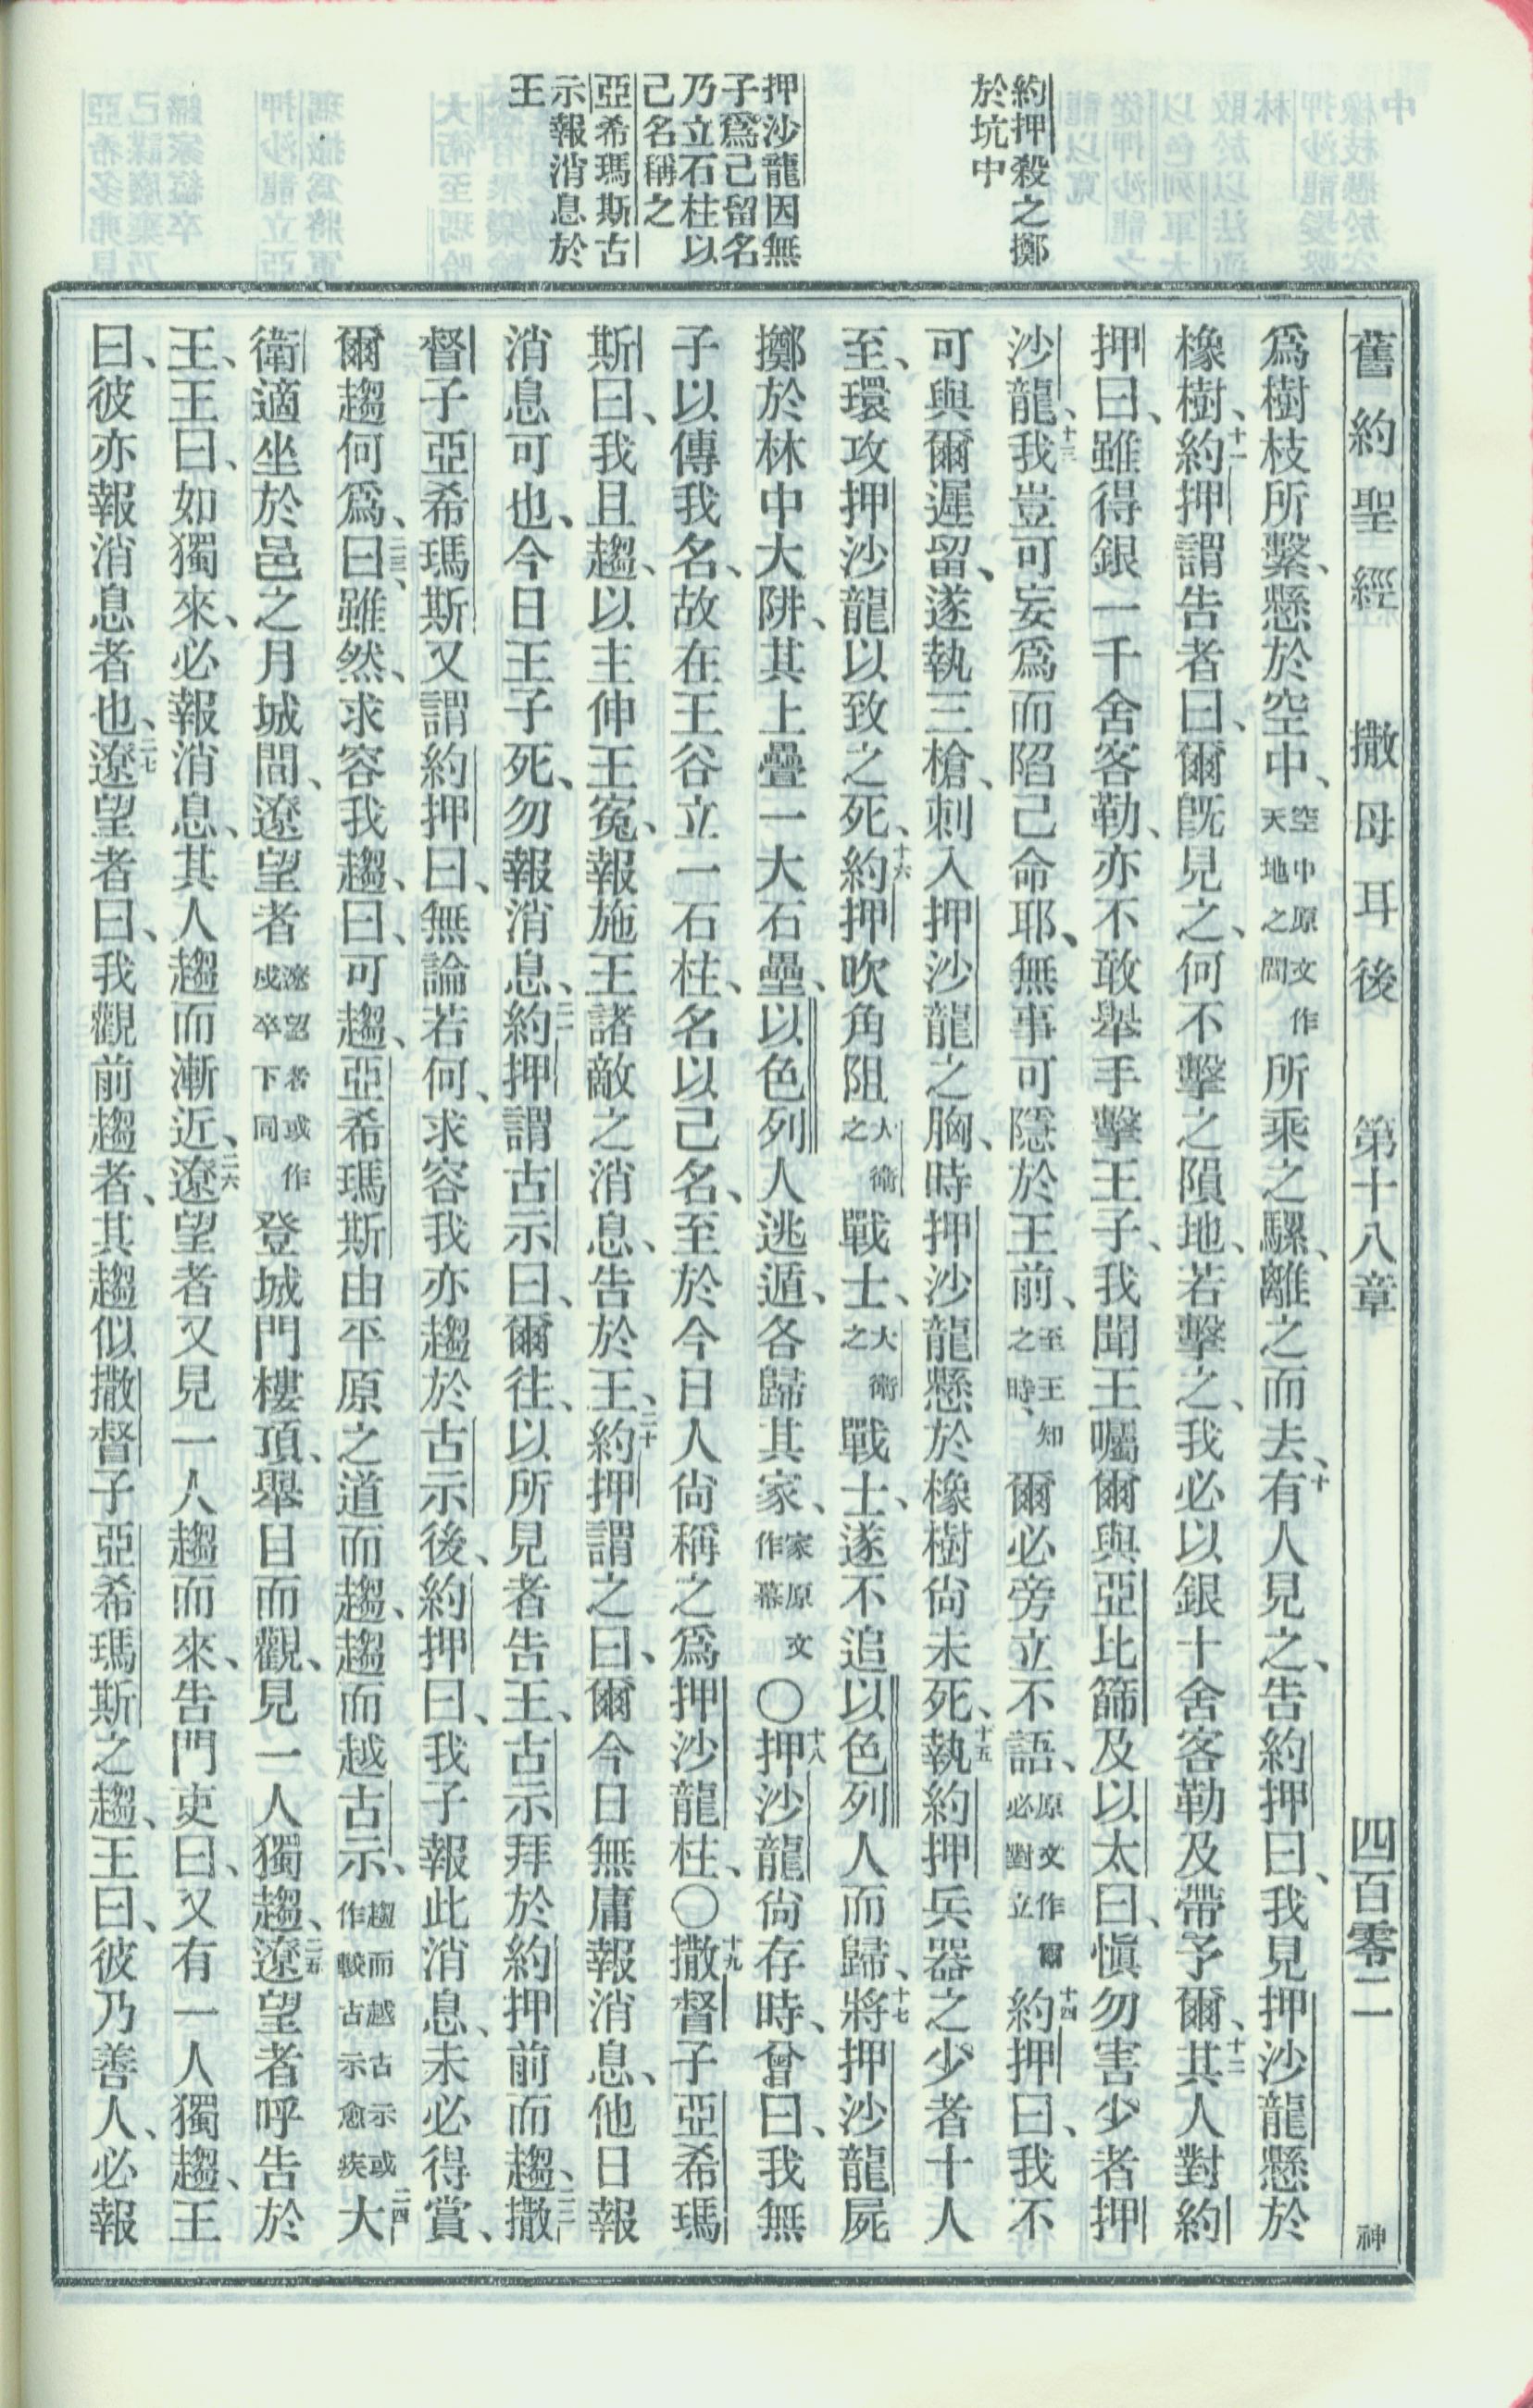 約押殺之擲
於坑中
押沙龍因無
子爲己留名
乃立石柱以
己名稱之
亞希瑪斯古
示報消息於
王
舊約聖經 撒母耳後 第十八章 四百零二 神
爲樹枝所繫、懸於空中、空中原文作天地之間所乘之騾、離之而去、十有人見之、告約押曰、我見押沙龍懸於
橡樹、十一約押謂告者曰、爾旣見之、何不擊之隕地、若擊之、我必以銀十舍客勒及帶予爾、十二其人對約
押曰、雖得銀一千舍客勒、亦不敢舉手擊王子、我聞王囑爾與亞比篩及以太曰、愼勿害少者押
沙龍、十三我豈可妄爲而陷己命耶、無事可隱於王前、至王知之時、爾必旁立不語、原文作爾必對立十四約押曰、我不
可與爾遲留、遂執三槍、刺入押沙龍之胸、時押沙龍懸於橡樹尙未死、十五執約押兵器之少者十人
至、環攻押沙龍以致之死、十六約押吹角阻大衛之戰士、大衛之戰士、遂不追以色列人而歸、十七將押沙龍屍
擲於林中大阱、其上疊一大石壘、以色列人逃遁、各歸其家、家原文作幕〇十八押沙龍尙存時、曾曰、我無
子以傳我名、故在王谷立一石柱、名以己名、至於今日人尙稱之爲押沙龍柱、〇十九撒督子亞希瑪
斯曰、我且趨、以主伸王冤、報施王諸敵之消息、告於王、二十約押謂之曰、爾今日無庸報消息、他日報
消息可也、今日王子死、勿報消息、二一約押謂古示曰、爾往、以所見者告王、古示拜於約押前而趨、二二撒
督子亞希瑪斯又謂約押曰、無論若何、求容我亦趨於古示後、約押曰、我子報此消息、未必得賞、
爾趨何爲、二三曰、雖然、求容我趨、曰、可趨、亞希瑪斯由平原之道而趨、趨而越古示、趨而越古示或作較古示愈疾二四大
衛適坐於邑之月城間、遼望者遼望者或作戍卒下同登城門樓頂、舉目而觀、見一人獨趨、二五遼望者呼告於
王、王曰、如獨來、必報消息、其人趨而漸近、二六遼望者又見一人趨而來、告門吏曰、又有一人獨趨、王
曰、彼亦報消息者也、二七遼望者曰、我觀前趨者、其趨似撒督子亞希瑪斯之趨、王曰、彼乃善人、必報